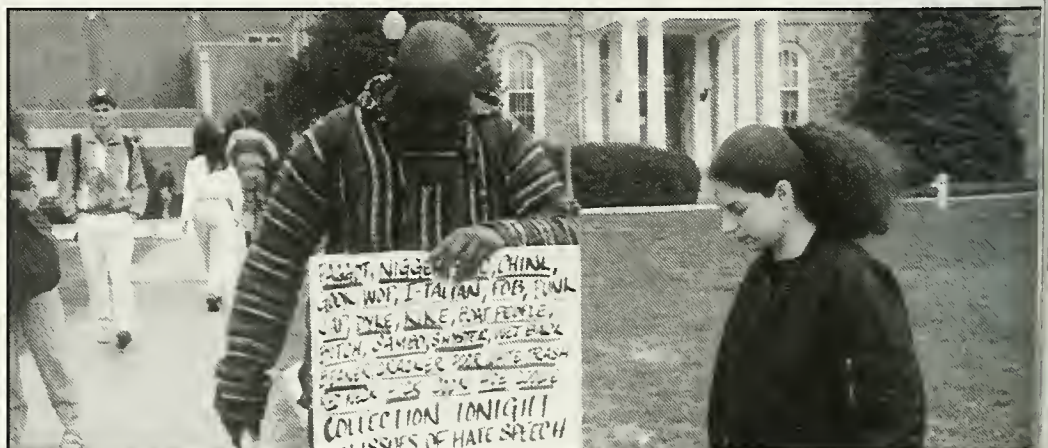 FAGGOT, NIGGE CHINK,
GOOK WOP, I-TALIAN, FOB, PUNK
JAP, DYKE, KIKE, BOAT PEOPLE,
BITCH, SAMBO, SHYSTER, WET BACK
CRACKER POOR WHITE TRASH
COLLECTION TONIGHT
ISSUES OF HATE SPEECH